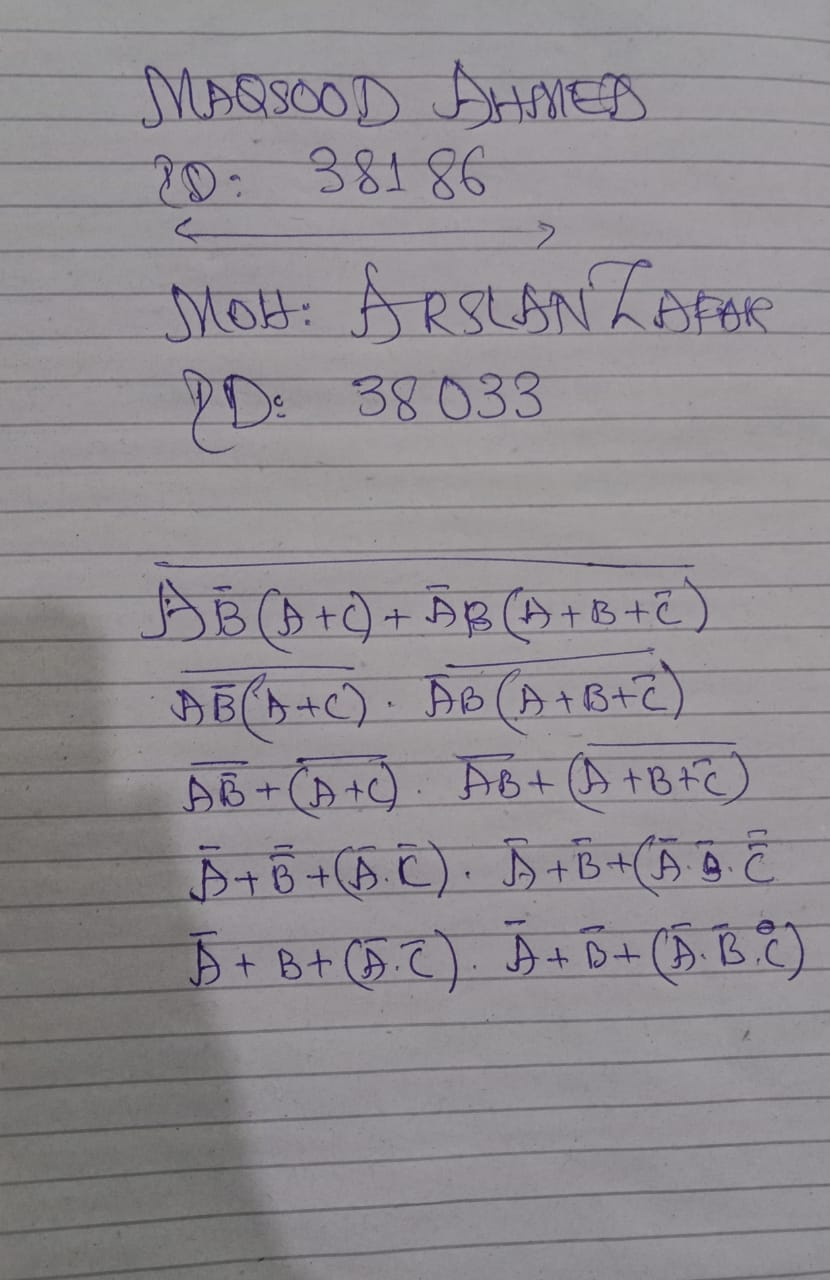 MAQSOOD AHMED
ID: 38186
MOH: ARSLAN ZAFAR
ID: 38033
\overline{A\bar{B}(A+C)+\bar{A}B(A+B+\bar{C})}
\overline{A\bar{B}(A+C)} · \overline{\bar{A}B(A+B+\bar{C})}
\overline{A\bar{B}}+(\overline{A+C}) · \overline{AB}+(\overline{A+B+\bar{C}})
\bar{A}+\bar{\bar{B}}+(\bar{A}.\bar{C}) · \bar{A}+\bar{B}+(\bar{A}.\bar{B}.\bar{\bar{C}}
\bar{A}+B+(\bar{A}.\bar{C}) · \bar{A}+\bar{B}+(\bar{A}.\bar{B}.C)